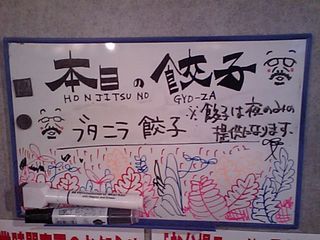 本日の餃子
HONJITSU NO GYO-ZA
ブタニラ餃子
※餃子は夜のみの
提供になります。